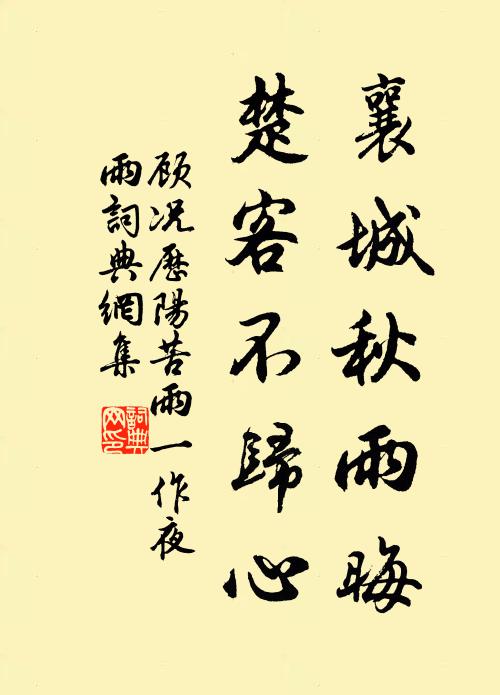 襄城秋雨晦
楚客不歸心
顾况歷陽苦雨一作夜
雨詞典網集
詞典
网印